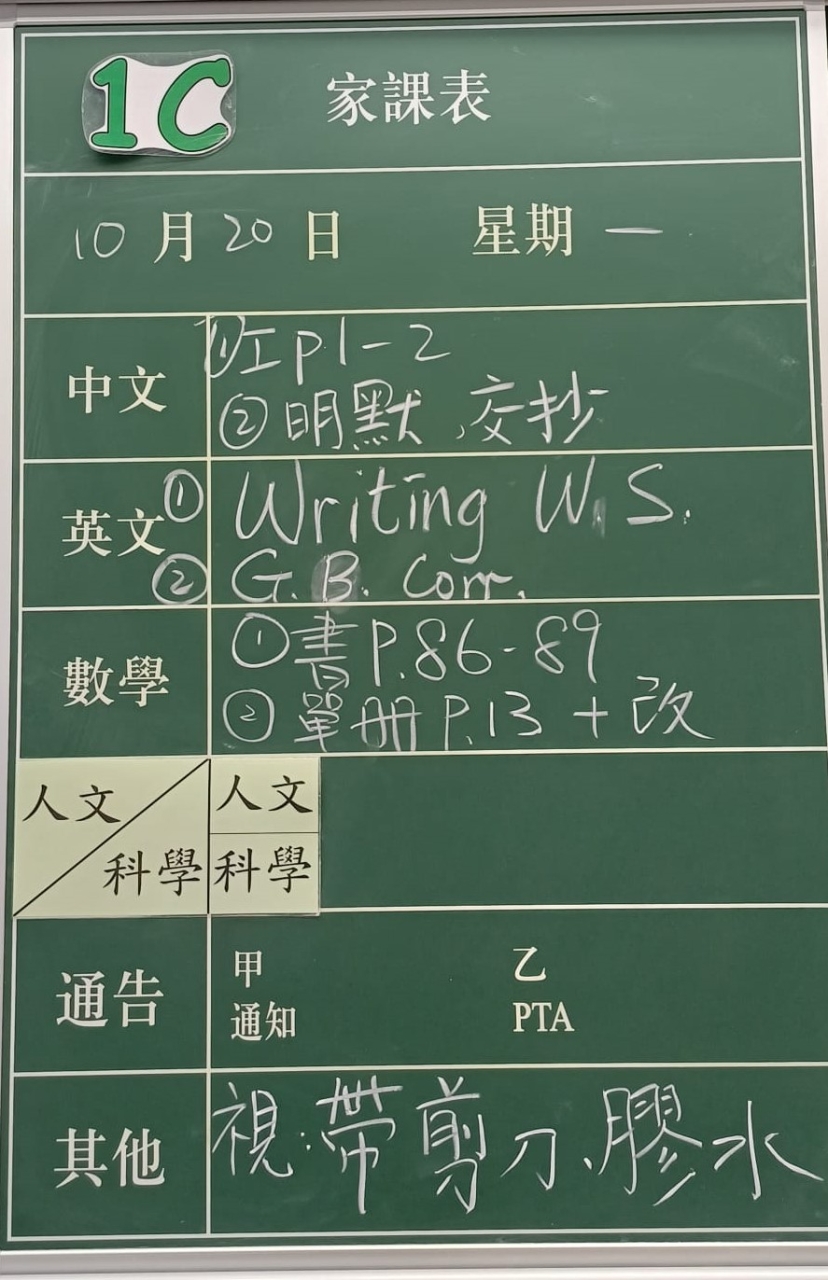 1C 家課表
10月20日 星期一
中文 ①工P1-2
②明默、交抄
英文 ① Writing W.S.
② G.B. Corr.
數學 ①書P.86-89
②單册P.13+改
人文/科學 人文
科學
通告 甲 乙
通知 PTA
其他 視:帶剪刀、膠水